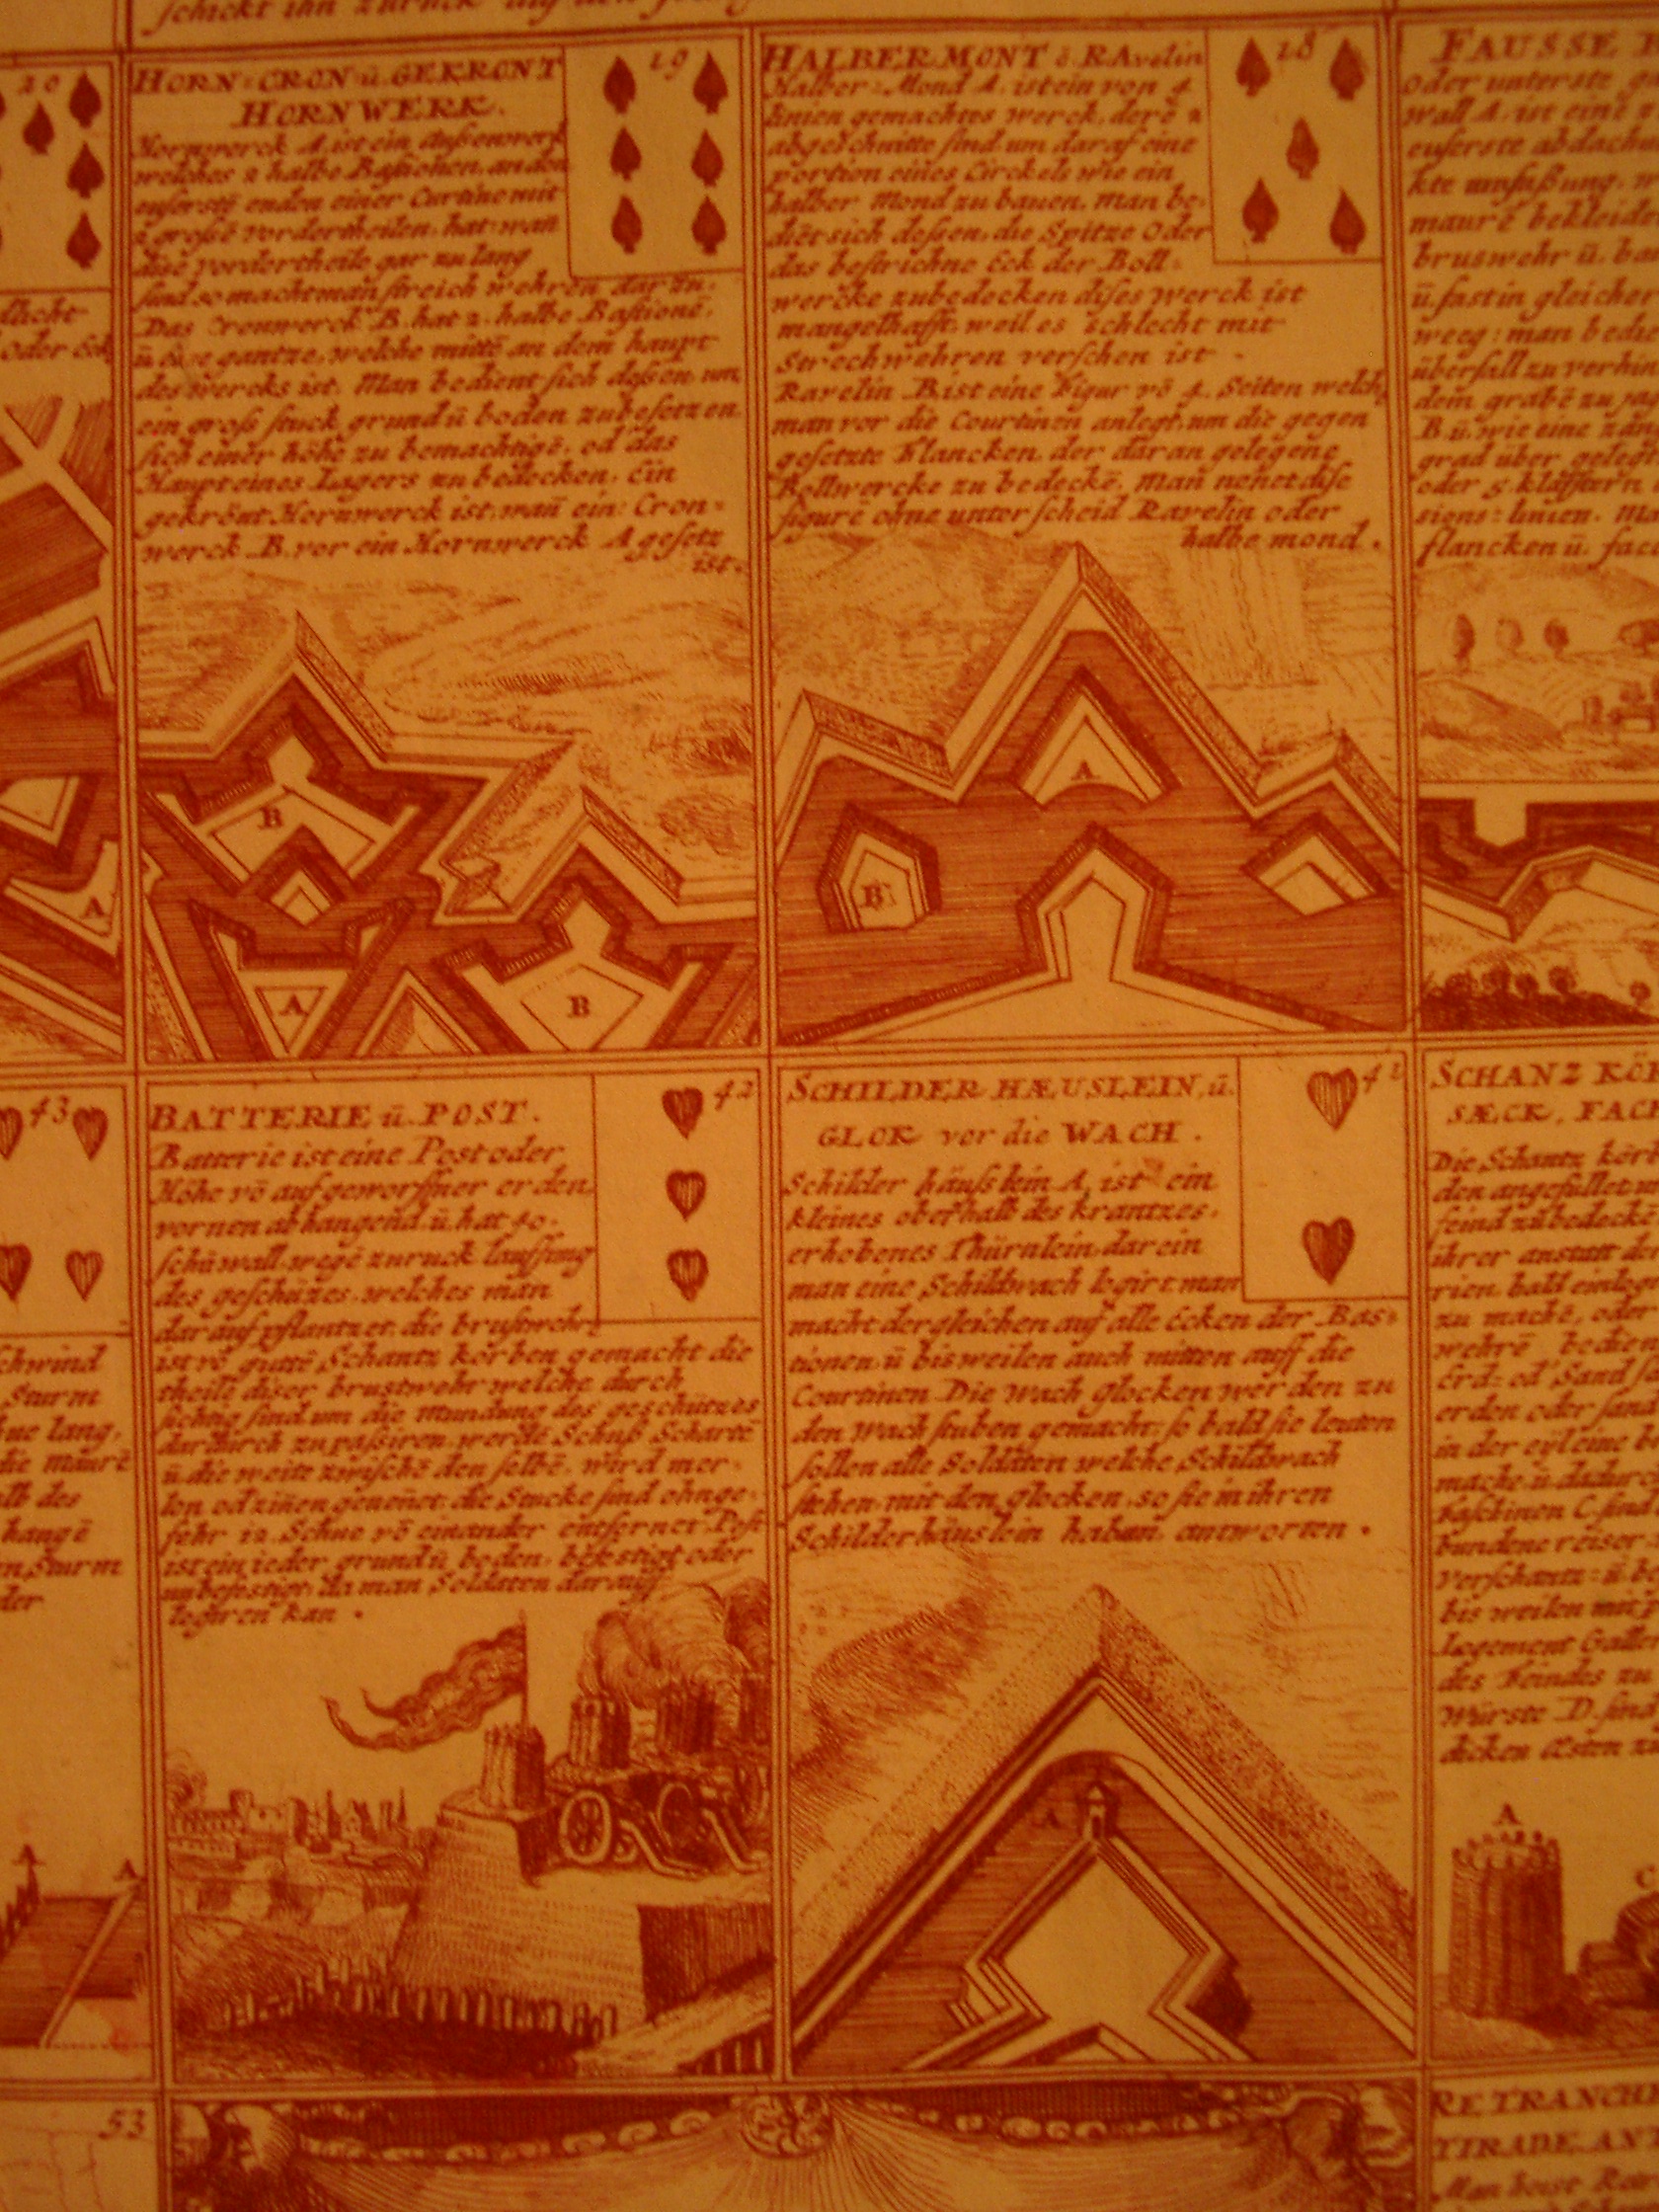 schickt ihn zurück auf den
20
HORN=CRON ū. GEKRONT
HORNWERK.
19
Hornwerck A. ist ein Außenwerk
welches 2 halbe Bastionen, an den
eüserstē enden einer Curtine mit
2 großē vordertheilen, hat: wañ
dise vordertheile gar zu lang
sind so macht mañ streich wehren darzu.
Das Cronwerck B. hat 2. halbe Bastione,
ū eine gantze, welche mittē an dem haupt
des wercks ist. Man bedient sich deßen, um
ein groß stuck grund ū boden zubesetzen
sich einer höhe zu bemachtigē, od das
Haupt eines Lagers zu bedecken. Ein
gekrönt Hornwerck ist, wañ ein: Cron=
werck B. vor ein Hornwerck A gesetz
ist.
B
A
B
HALBER MONT ō RAvelin
18
Halber=Mond A. ist ein von 4
linien gemachtes werck, derē 2
abgeschnitte sind um daraf eine
portion eines Circkels wie ein
halber Mond zu bauen. Man be=
diēt sich deßen, die Spitze Oder
das bestrichne Eck der Boll=
wercke zubedecken dises werck ist
mangelhafft, weil es schlecht mit
Strechwehren versehen ist.
Ravelin B. ist eine Figur vō 4. Seiten welch
man vor die Courtinen anlegt, um die gegen
gesetzte Flancken, der daran gelegene
Bollwercke zu bedeckē. Mañ nenet dise
figurē ohne unterscheid Ravelin oder
halbe mond.
A
B
FAUSSE
Oder unterste
Wall A. ist eine
euserste abdachu
kte umfaßung,
maurē bekleide
bruswehr ū. ba
ū. fast in gleicher
weeg: man bedie
überfall zu verhin
dem grabē zu jag
B. ū. wie eine zäng
grad über gelegt
oder 5. klafftern
siens=linien. Ma
flancken ū. face
A
43
BATTERIE ū. POST.
42
Batterie ist eine Post oder
Höhe vō aufgeworffner erden,
vornen abhangend ū. hat 40.
schū wall-wegē zuruck lauffung
des geschüzes, welches man
darauf pflantzet. die brustwehr
ist vō guttē Schantz körben gemacht die
theile diser brustwehr welche durch
sichtig sind, um die Mundung des geschützes
dardurch zu paßiren, werdē Schuß Scharte
ū. die weite zwischē den selbē, wird mer=
lon od zinen genenet. die Stucke sind ohnge=
fehr 12. Schue vō einander entfernet. Post
ist ein ieder grund ū. boden, befestigt oder
unbefestigt, da man Soldaten darauf
logiren kan.
SCHILDER HÆUSLEIN, ū.
41
GLOK vor die WACH.
Schilder häußlein A, ist ein
kleines oberhalb des krantzes
erhobenes Thürnlein, darein
man eine Schildwach logirt man
macht dergleichen auf alle Ecken der Bas=
tionen, ū bisweilen auch mitten auff die
Courtinen. Die Wach glocken werden zu
den Wachstuben gemacht; so bald sie leuten
sollen alle Soldaten welche Schildwach
stehen, mit den glocken, so sie in ihren
Schilderhäuslein haben antworten.
A
SCHANZ KÖR
SÆCK, FACH
Die Schantz körb
den angefüllet
feind zubedeckē
ihrer anstatt der
rien, bald
zu machē, oder
wehrē bedien
Erd= od Sand sä
erden oder sand
in der eyl eine b
mache ū. dadurch
Faschinen C. sind
bundene reiser
verschantz= ū be
bis weilen mit
Logement Galler
des Feindes zu
Würste D. sind
dicken æsten zu
A
C
chwind
Sturm
lang,
die maurē
des
hangē
Sturm
der
A
A
53
RETRANCHE
TIRADE. AN